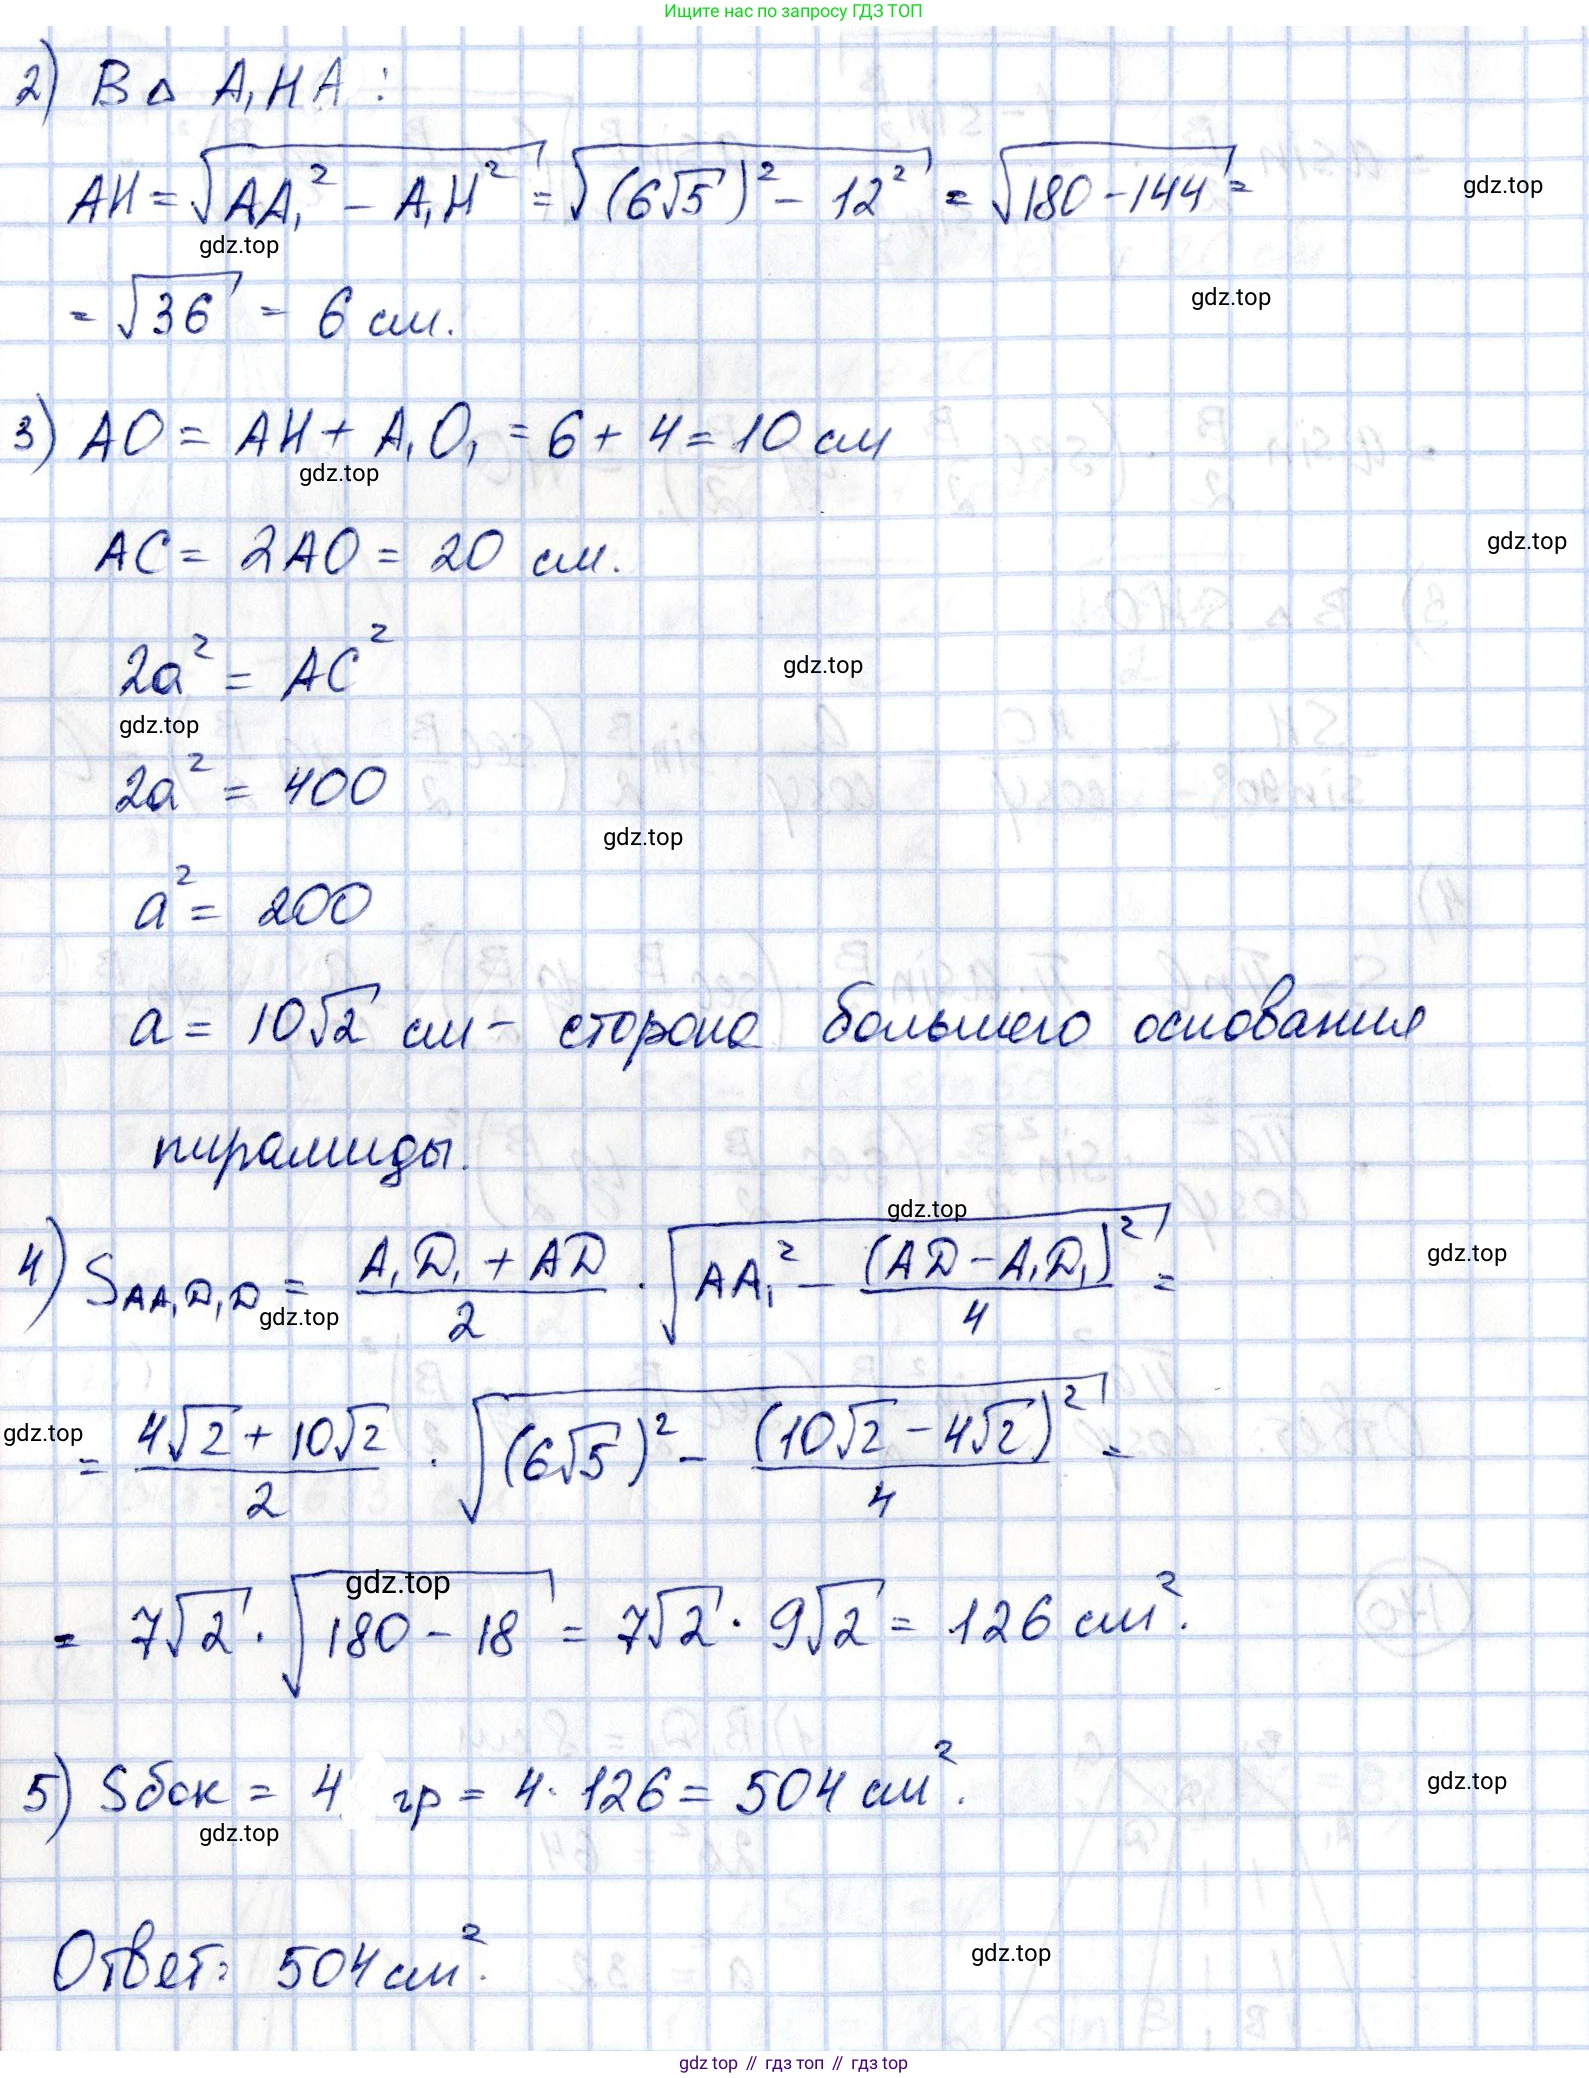 Ищите нас по запросу ГДЗ ТОП
2) В △ A₁HA :
AH = √(AA₁² − A₁H²) = √((6√5)² − 12²) = √(180 − 144) =
gdz.top
gdz.top
= √36 = 6 см.
gdz.top
3) AO = AH + A₁O₁ = 6 + 4 = 10 см
gdz.top
AC = 2AO = 20 см.
gdz.top
2a² = AC²
gdz.top
gdz.top
2a² = 400
gdz.top
a² = 200
a = 10√2 см – сторона большего основания
пирамиды.
gdz.top
4) S_AA₁D₁D = (A₁D₁ + AD)/2 · √(AA₁² − (AD − A₁D₁)²/4) =
gdz.top
gdz.top
= (4√2 + 10√2)/2 · √((6√5)² − (10√2 − 4√2)²/4) =
gdz.top
gdz.top
= 7√2 · √(180 − 18) = 7√2 · 9√2 = 126 см².
5) Sбок = 4 гр = 4 · 126 = 504 см².
gdz.top
gdz.top
Ответ: 504 см².
gdz.top
gdz.top // гдз топ // gdz.top